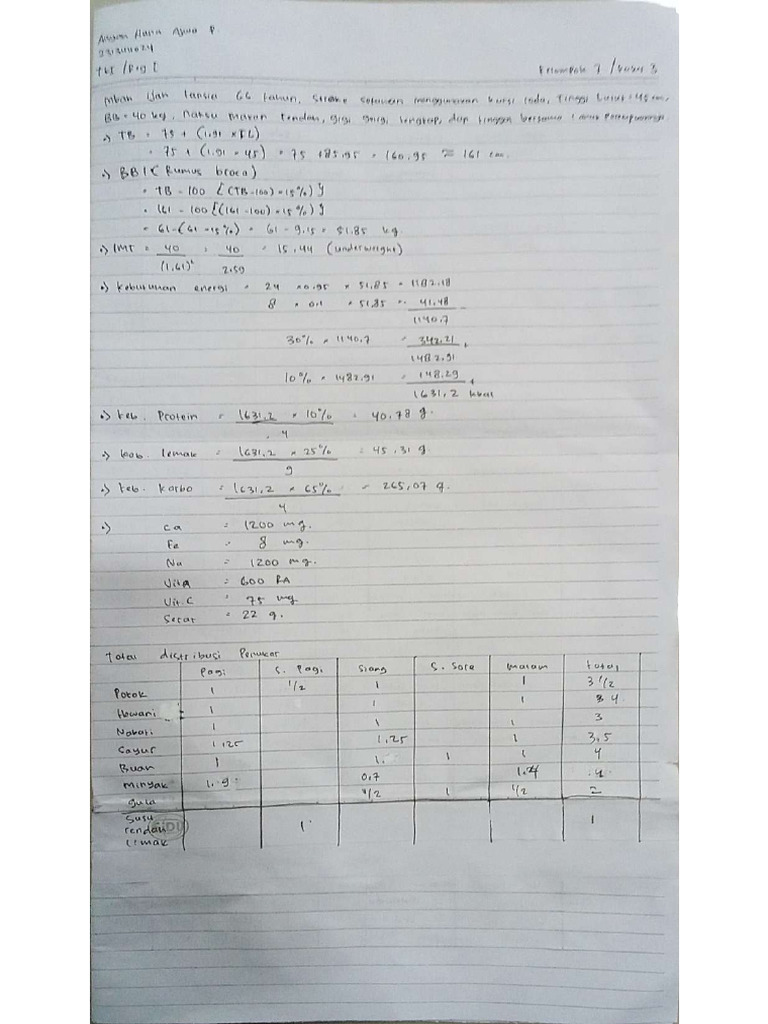 7B1 / Reg I
Kelompok 7 / kasus 3
mbah Ijah lansia 66 tahun, stroke sebelum menggunakan kursi roda, Tinggi lutut = 45 cm,
BB = 40 kg. Nafsu makan rendah, gigi lengkap, dan tinggal bersama anak perempuannya.
•) TB = 75 + (1.91 × TL)
= 75 + (1.91 × 45) = 75 + 85.95 = 160.95 ≅ 161 cm.
•) BBI (Rumus broca)
= TB - 100 [(TB-100) × 15%)]
= 161 - 100 [(161 - 100) × 15%)]
= 61 - (61 × 15%) = 61 - 9.15 = 51.85 kg.
•) IMT = 40 / (1,61)² = 40 / 2.59 = 15,44 (underweight)
•) Kebutuhan energi = 24 × 0.95 × 51,85 = 1182.18
8 × 0.1 × 51,85 = 41.48
1140.7
30% × 1140.7 = 342.21 +
1482.91
10% × 1482.91 = 148.29 +
1631,2 kkal
•) Keb. Protein = 1631.2 × 10% / 4 = 40.78 g.
•) keb. lemak = 1631.2 × 25% / 9 = 45.31 g.
•) keb. karbo = 1631,2 × 65% / 4 = 265,07 g.
•) Ca = 1200 mg.
Fe = 8 mg.
Na = 1200 mg.
Vit A = 600 RA
Vit. C = 75 mg
Serat = 22 g.
Total distribusi Penukar
Pagi S. Pagi Siang S. Sore malam total
Pokok 1 1/2 1 1 3 1/2
Hewani 1 1 1 4
Nabati 1 1 1 3
Sayur 1,25 1.25 1 3,5
Buah 1 1. 1 1 4
minyak 1.9 0,7 1.4
gula 1/2 1 1/2 2
Susu rendah lemak 1 1
SIDU